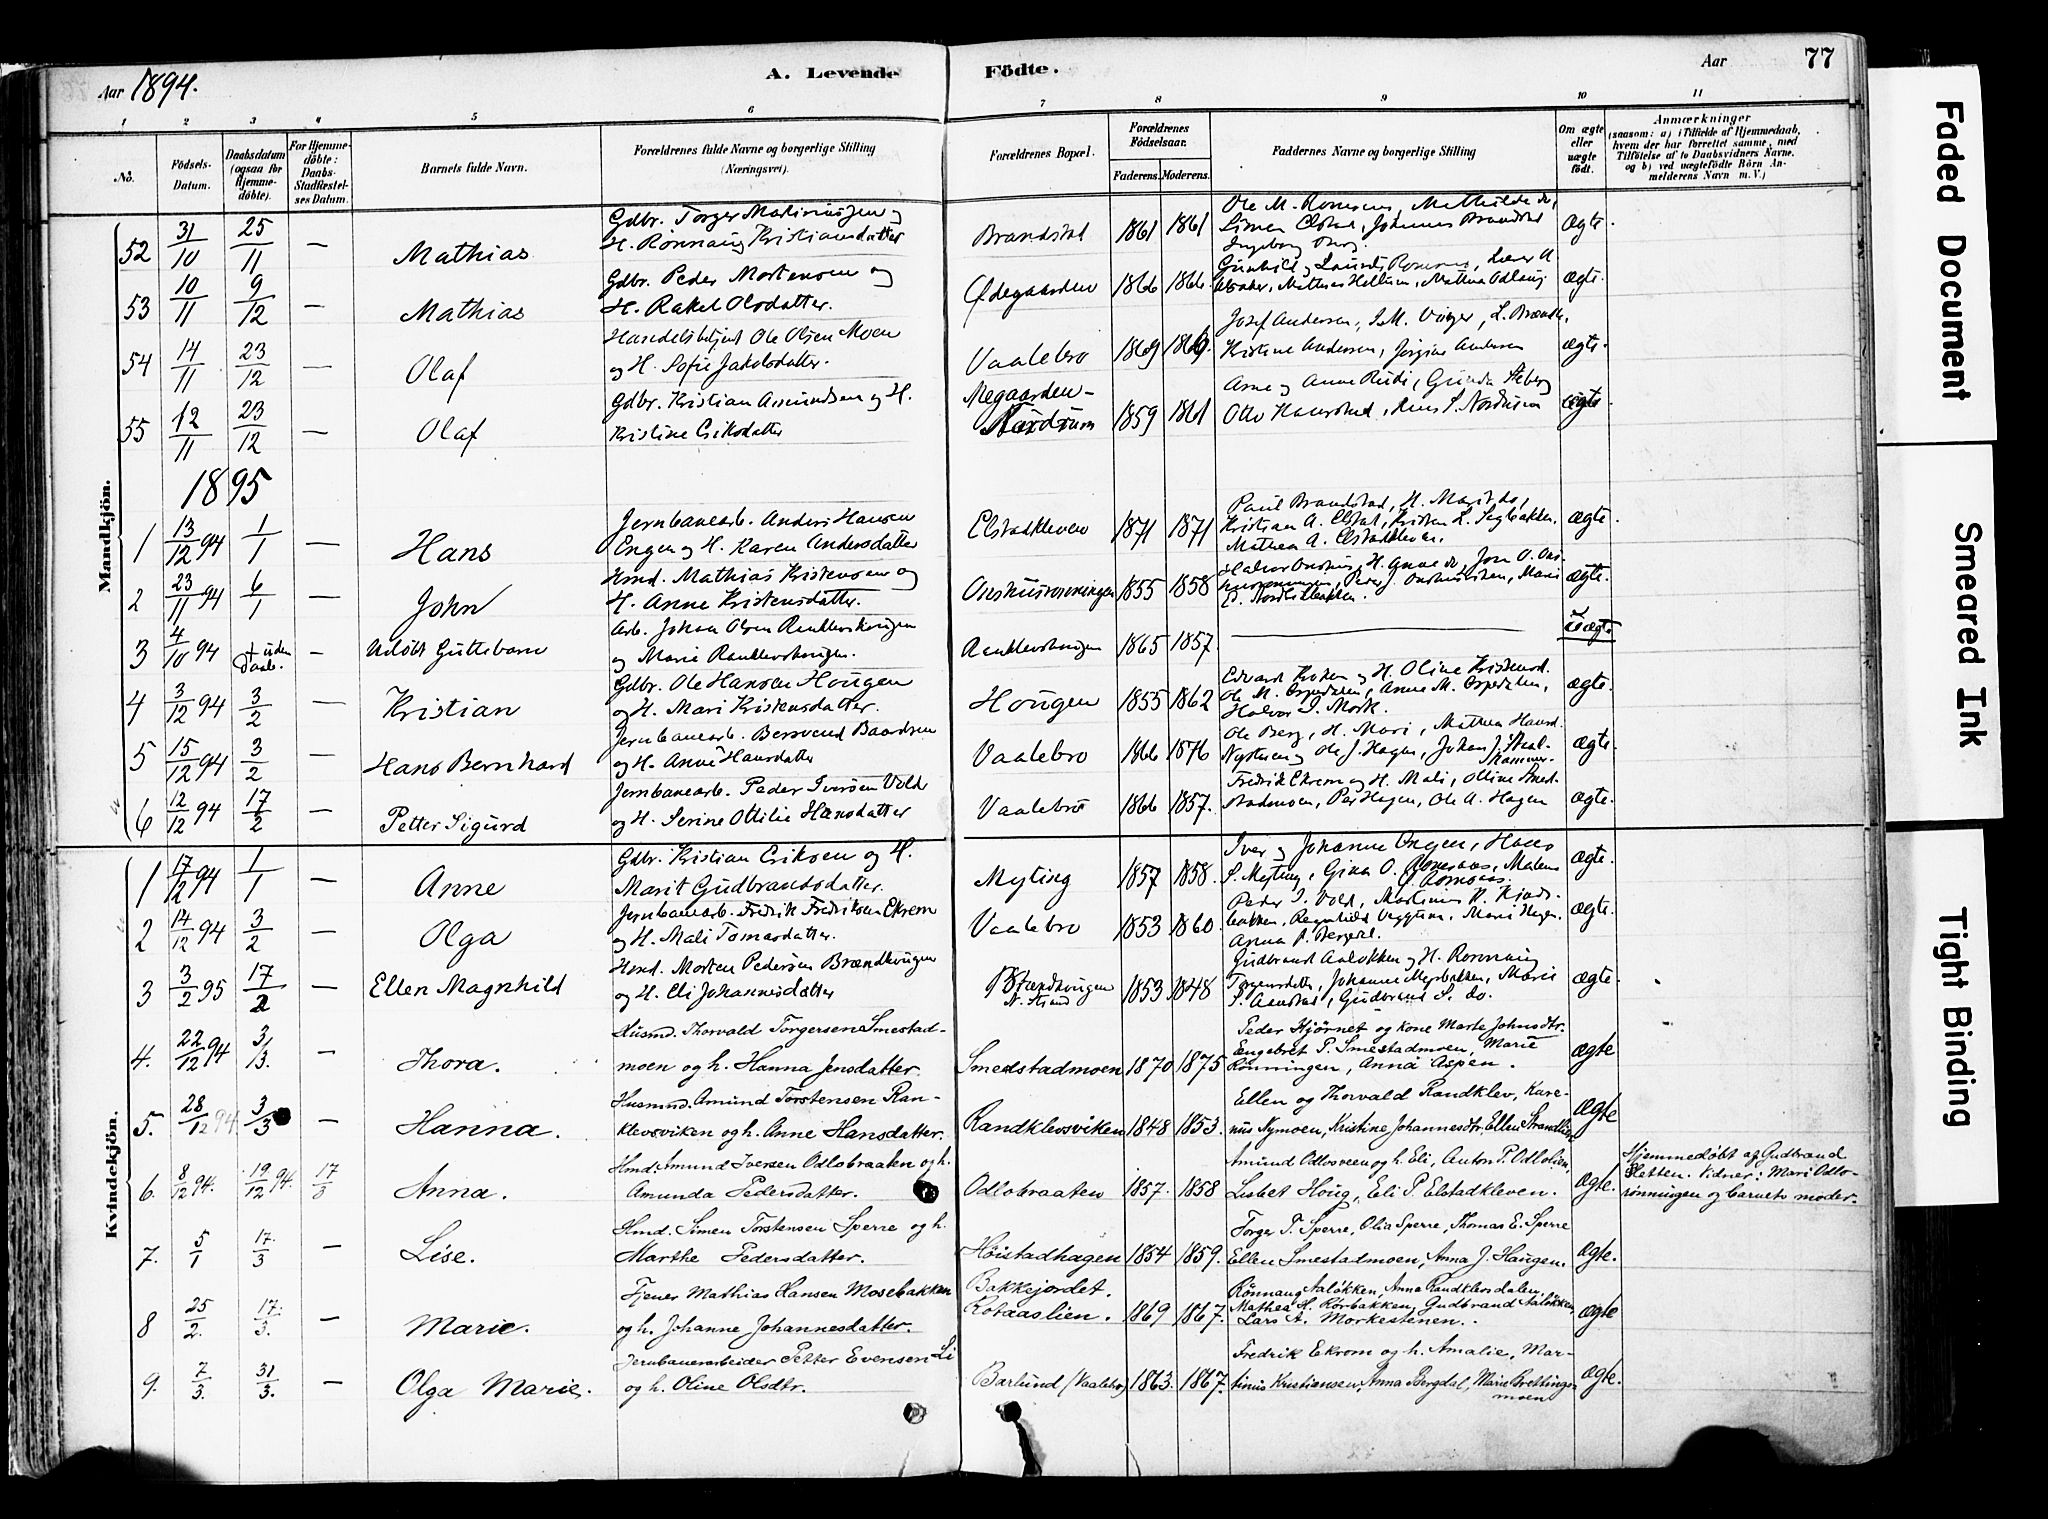 Aar 1894. A. Levende Födte. Aar 77
1 2 3 4 5 6 7 8 9 10 11
No. Födsels-Datum. Daabsdatum (ogsaa for Hjemmedöbte). For Hjemmedöbte: Daabs-Stadfæstelses Datum. Barnets fulde Navn. Forældrenes fulde Navne og borgerlige Stilling (Næringsvei). Forældrenes Bopæl. Forældrenes Födselsaar. Faderens. Moderens. Faddernes Navne og borgerlige Stilling Om ægte eller uægte födt. Anmærkninger (saasom: a) i Tilfælde af Hjemmedaab, hvem der har forrettet samme, med Tilföielse af to Daabsvidners Navne, og b) ved uægtefödte Börn Anmelderens Navn m. V.)
Mandkjön.
52 31/10 25/11 — Mathias Gdbr. Torger Mathiniusjen og H. Rönnaug Kristiansdatter Brandstad 1861 1861 Ole M. Romsaas, Mathilde do, Simen Elstad, Johannes Brandstad Ingeborg Berg. Ægte.
53 10/11 9/12 — Mathias Gdbr. Peder Mortensen og H. Rakel Olsdatter. Ødegaarden 1866 1866 Gunhild og Laurits Romsaas, Mathias Hellum, Mathea ægte.
54 14/11 23/12 — Olaf Handelsbetjent Ole Olsen Moen og H. Sofie Jakobsdatter. Vaalebro 1869 1869. Josef Andersen, J. M. Vinger, Kristine Andersen, Jörgine Andersen ægte.
55 12/11 23/12 — Olaf Gdbr. Kristian Amundsen og H. Kristine Eriksdatter Negaarden - Nordrum 1859 1861 Arne og Anne Rudi, Gunda Otto Nordrum ægte
1895
1 13/12 94 1/1 — Hans Jernbanearb. Anders Hansen Engen og H. Karen Andersdatter Elstadkleven 1871 1871 Paul Brandstad, H. Marit do, Kristian A. Elstad, Kristen L. Sagbakken, Mathea A. Elstadkleven. Ægte.
2 23/11 94 6/1 — John Hmd. Mathias Kristensen og H. Anne Kristensdatter. Onshusrönningen 1855 1858 Halvor Onshus, H. Anne do, Jorn O. Onshusrönningen, Peder J. Onshusløkken, Mari Ed. Nordlibakken. ægte.
3 4/10 94 + uden Daab. — Udöbt Guttebarn Arb. Johan Olsen Randklevshougen og Marie Randklevshougen. Randklevshougen 1865 1857. — uægte
4 3/12 94 3/2 — Kristian Gdbr. Ole Hansen Hougen og H. Mari Kristensdatter. Hougen 1855 1862 Edvard Kroken og H. Oline Kristensd. Ole M. Espedalen, Anne M. Espedalen, Halvor J. Mork. ægte.
5 15/12 94 3/2 — Hans Bernhard Jernbanearb. Bersvend Baardsen og H. Anne Hansdatter Vaalebro 1866 1876 Ole Berg, H. Mari, Mathea Hansd. Nysteen og Ole J. Hagen, Johan J. ægte.
6 12/12 94 17/2 — Petter Sigurd Jernbanearb. Peder Iversen Vold og H. Serine Ottilie Hansdatter Vaalebro 1866 1857. Fredrik Ekrem og H. Mali, Olline Smedstadmoen, Per Hagen, Ole A. Hagen Ægte.
Kvindekjön.
1 17/12 94 1/1 — Anne Gdbr. Kristian Eriksen og H. Marit Gudbrandsdatter. Myting 1857 1858. Iver og Johanne Engen, Hans S. Myting, Gina O. Romsaas, Malene O. Romsaas. ægte.
2 14/12 94 3/2 — Olga Jernbanearb. Fredrik Fredriksen Ekrem og H. Mali Tomasdatter. Vaalebro 1853 1860. Peder I. Vold, Martinus K. Kjonsbakken, Ragnhild Veggum, Mari Hagen, Anna P. Bergdl. ægte.
3 3/2 95 17/2 — Ellen Magnhild Hmd. Morten Pedersen Brændhougen og H. Eli Johannesdatter Brændhougen N. Strand 1853 1848 Gudbrand Aaløkken og H. Rønnaug Torgersdtr, Johanne Myrbakken, Marie S. Aanstad, Gudbrand S. do. ægte.
4. 22/12 94 3/3. — Thora. Husmd. Thorvald Torgersen Smestadmoen og h. Hanna Jensdatter. Smedstadmoen 1870 1875 Peder Hjörnet og kone Marte Johnsdtr. Engebret P. Smestadmoen, Marie Rönningen, Anna Aspen. Ægte
5. 28/12 94. 3/3 — Hanna. Husmnd. Amund Torstensen Randklevsviken og h. Anne Hansdatter. Randklevsviken 1848 1853. Ellen og Thorvald Randklev, Karenus Nymoen, Kristine Johannesdtr. Ellen Strandlien Ægte
6. 8/12 94. 19/12 94. 17/3 Anna. Hmd. Amund Iversen Odlobraaten og h. Amunda Pedersdatter. Odlobraaten 1857. 1858 Amund Odlosveen og h. Eli, Anton P. Odlolien, Lisbet Houg, Eli P. Elstadkleven. Ægte. Hjemmedöbt af Gudbrand Sletten. Vidner: Mari Odlorönningen og barnets moder.
7. 5/1 17/3 — Lise. Hmd. Simen Torstensen Sperre og h. Marthe Pedersdatter. Höistadhagen 1854 1859. Torger T. Sperre, Olia Sperre, Thomas E. Sperre Ellen Smestadmoen, Anna J. Haugen. Ægte.
8 25/2. 17/3. — Marie. Tjener Mathias Hansen Mosebakken og h. Johanne Johannesdatter. Bakkejordet. Rotaaslien. 1869 1867. Rönnaug Aalökken, Anna Randklevsdalen, Mathea H. Rörbakken, Gudbrand Aalökken, Lars A. Morkestenen. Ægte
9. 7/3. 31/3. — Olga Marie. Jernbanearbeider Petter Evensen Li og h. Oline Olsdtr. Barlund (Vaalebro) 1863. 1867. Fredrik Ekrom og h. Amalie, Martinus Kristiansen, Anna Bergdal, Marie Brettingsmoen Ægte.
Faded Document
Smeared Ink
Tight Binding